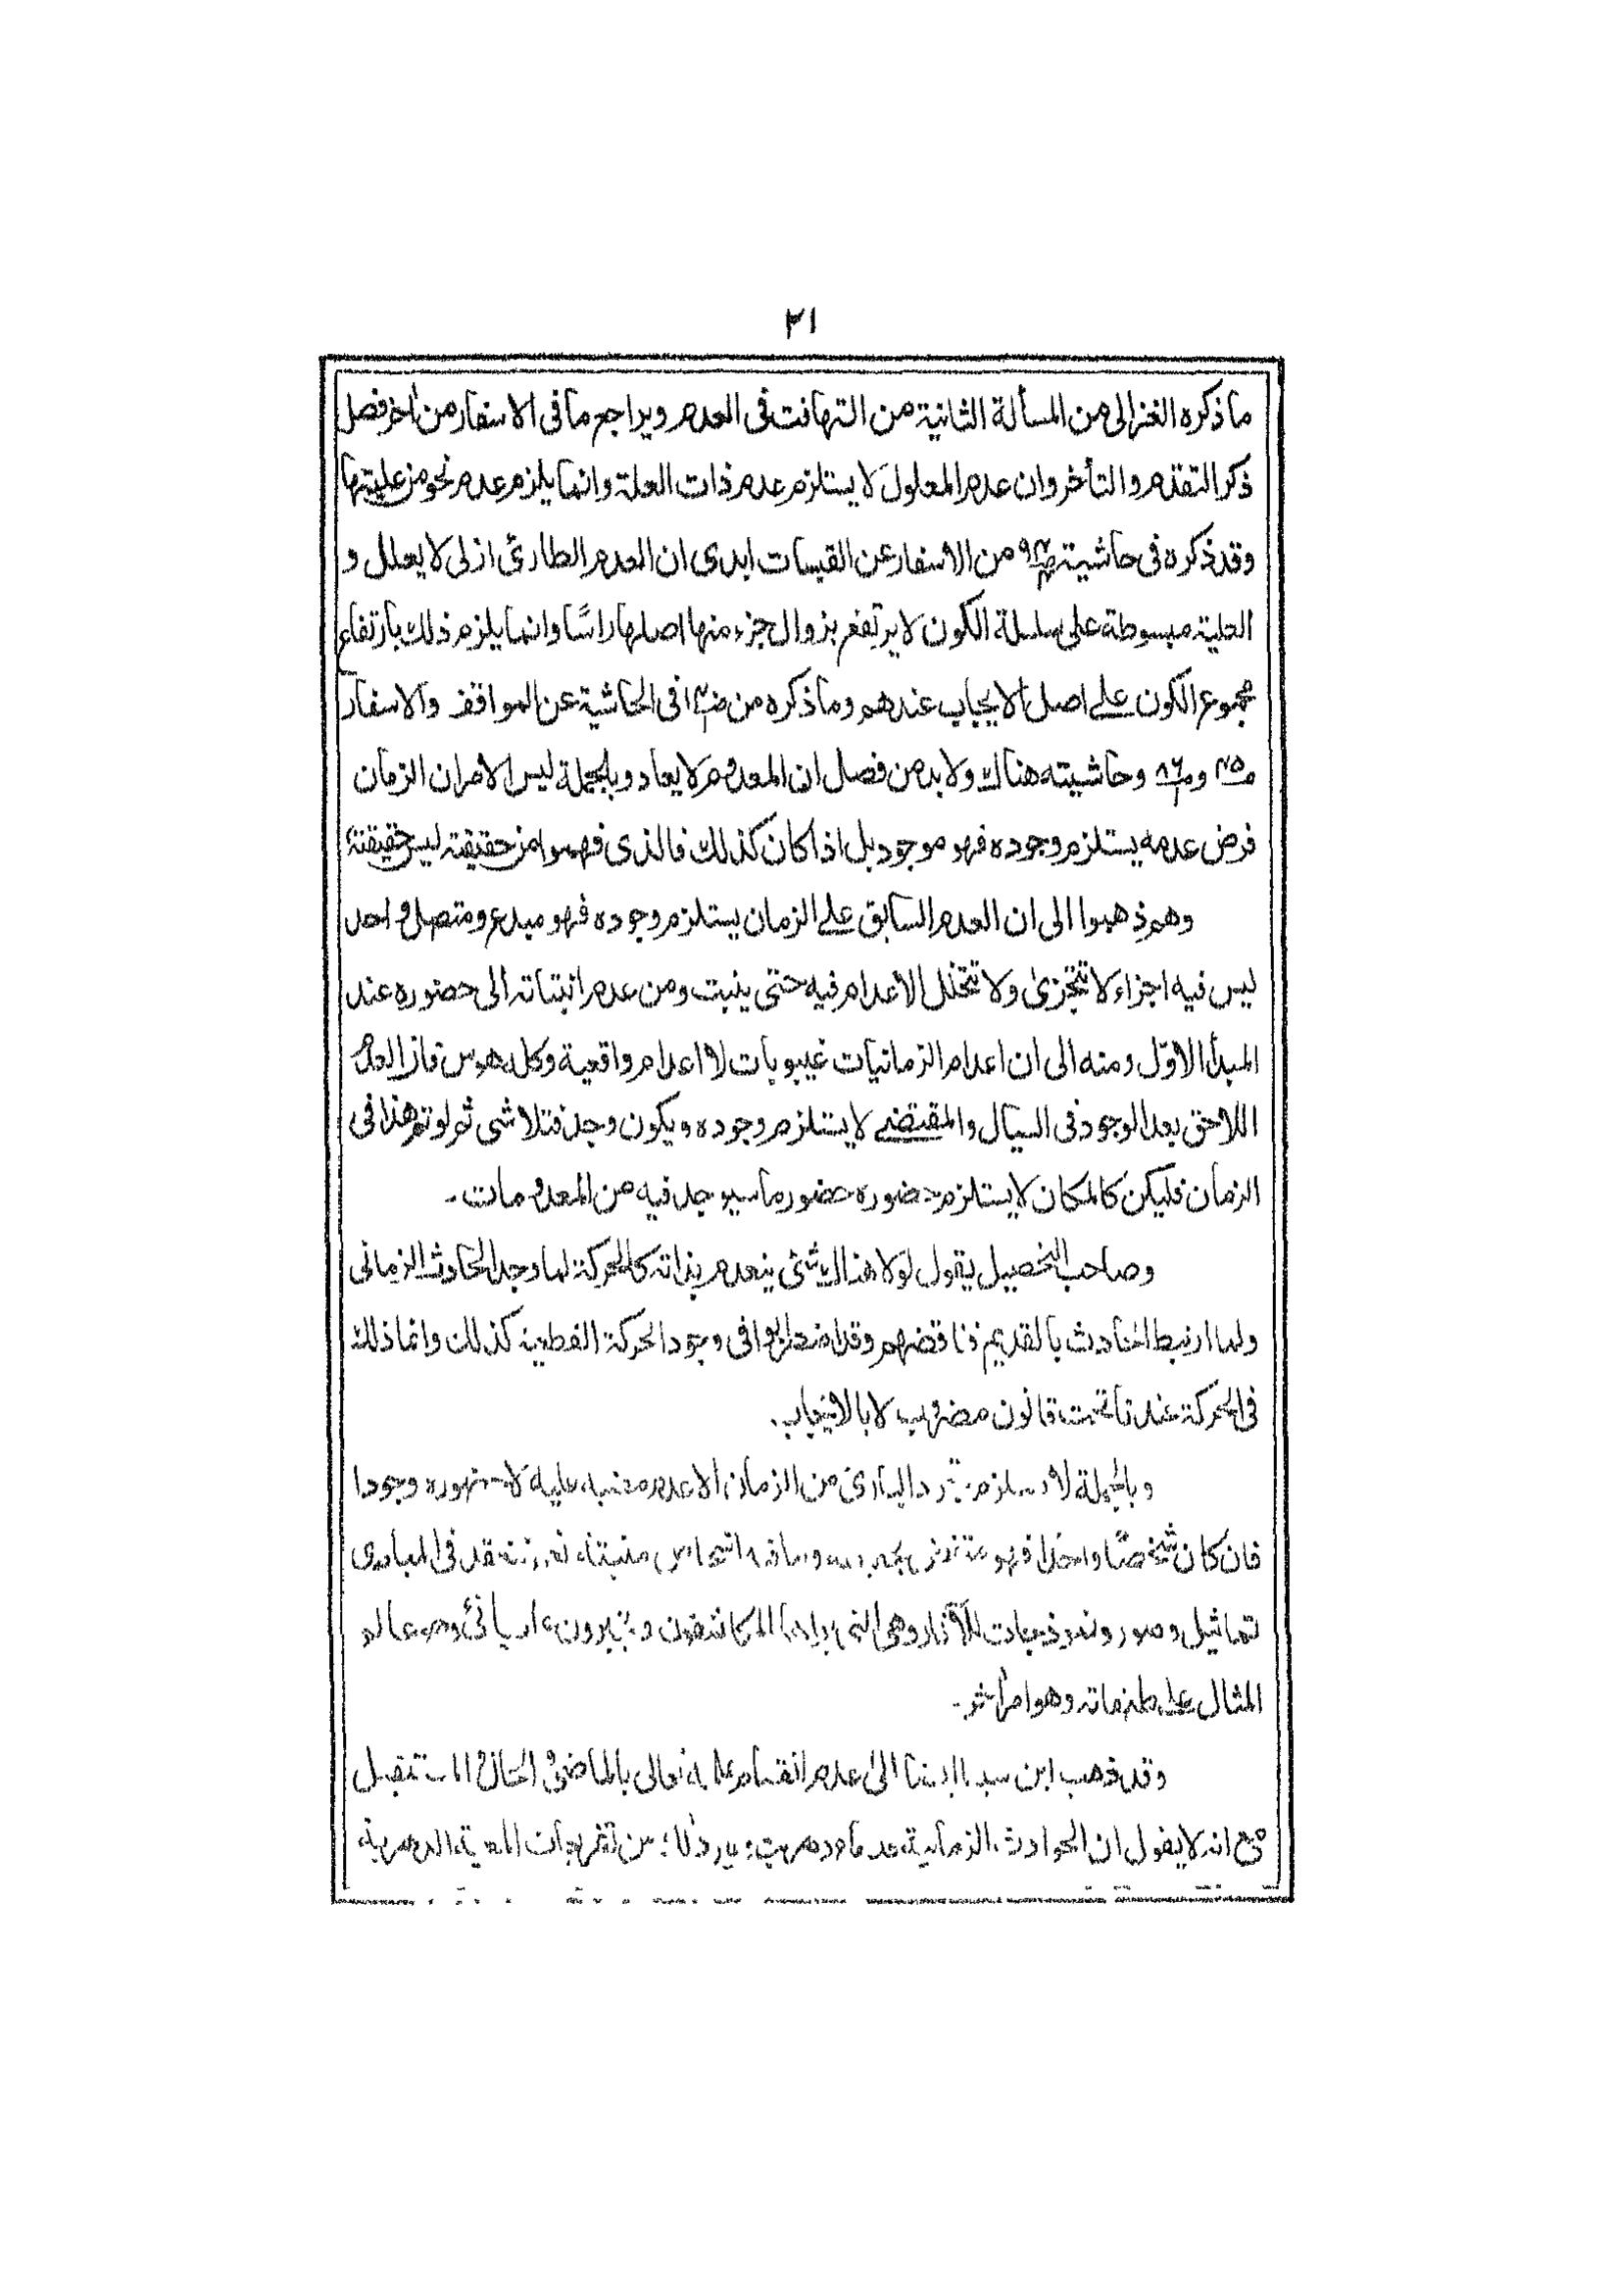 ٢١
ما ذكره الغزالى من المسألة الثانية من التهافت فى العدم ويراجع ما فى الاسفار من آخر فصل
ذكر التقدم والتأخر وان عدم المعلول لا يستلزم عدم ذات العلة وانما يلزم عدم نحو من عليتها
وقد ذكره فى حاشية من الاسفار عن القبسات ابدى ان العدم الطارئ ازلى لا يعلل و
العلية مبسوطة على سلسلة الكون لا يرتفع بزوال جزء منها اصلها راسًا وانما يلزم ذلك بارتفاع
مجموع الكون على اصل الايجاب عندهم وما ذكره من فى الحاشية عن المواقف والاسفار
وحاشيته هناك ولا بد من فصل ان المعدوم لا يعاد وبالجملة ليس الامر ان الزمان
فرض عدمه يستلزم وجوده فهو موجود بل اذا كان كذلك فالذى فهموا من حقيقته ليس حقيقته
وهم ذهبوا الى ان العدم السابق على الزمان يستلزم وجوده فهو مبدع ومتصل واحد
ليس فيه اجزاء لا تتجزى ولا تتخلل الأعدام فيه حتى ينبت ومن عدم انبتاته الى حضوره عند
المبدأ الاوّل ومنه الى ان اعدام الزمانيات غيبوبات لا اعدام واقعية وكله هوس فان العدم
اللاحق بعد الوجود فى السيال والمقتضى لا يستلزم وجوده ويكون وجد فتلاشى ثم لو تم هذا فى
الزمان فليكن كالمكان لا يستلزم حضوره حضور ما سيوجد فيه من المعدومات ـ
وصاحب التحصيل يقول لو لا هناك شئ ينعدم بذاته كالحركة لما وجد الحادث الزمانى
ولما ارتبط الحادث بالقديم فناقضهم وقد اضطربوا فى وجود الحركة القطعية كذلك وانما ذلك
فى الحركة عندنا تحت قانون مضروب لا بالايجاب.
وبالجملة لا يستلزم تجرد البارى من الزمان الا عدم عليه لا وجودا
فان كان شخصًا واحدًا فهو فى المبادى
تماثيل وصور وهى التى المكاشفون و عالم
المثال على وهو امر آخر ـ
وقد ذهب ابن سينا الى عدم انقسام علمه تعالى بالماضى والحال والمستقبل
مع انه لا يقول ان الحوادث الزمانية من تفريعات المعية الدهرية